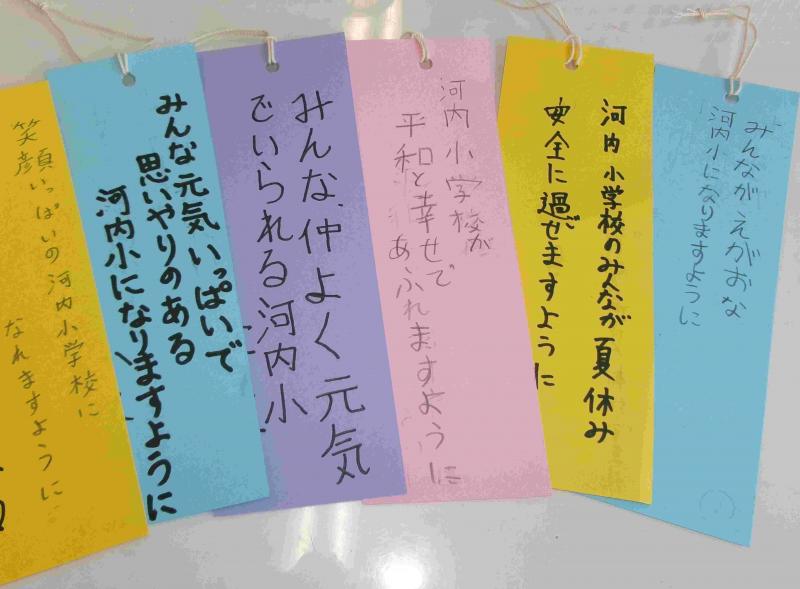 みんなが えがおな
河内小になりますように
河内小学校のみんなが夏休み
安全に過ぜますように
河内小学校が
平和と幸せで
あふれますように
みんな仲よく元気
でいられる河内小
みんな元気いっぱいで
思いやりのある
河内小になりますように
笑顔いっぱいの河内小学校に
なれますように